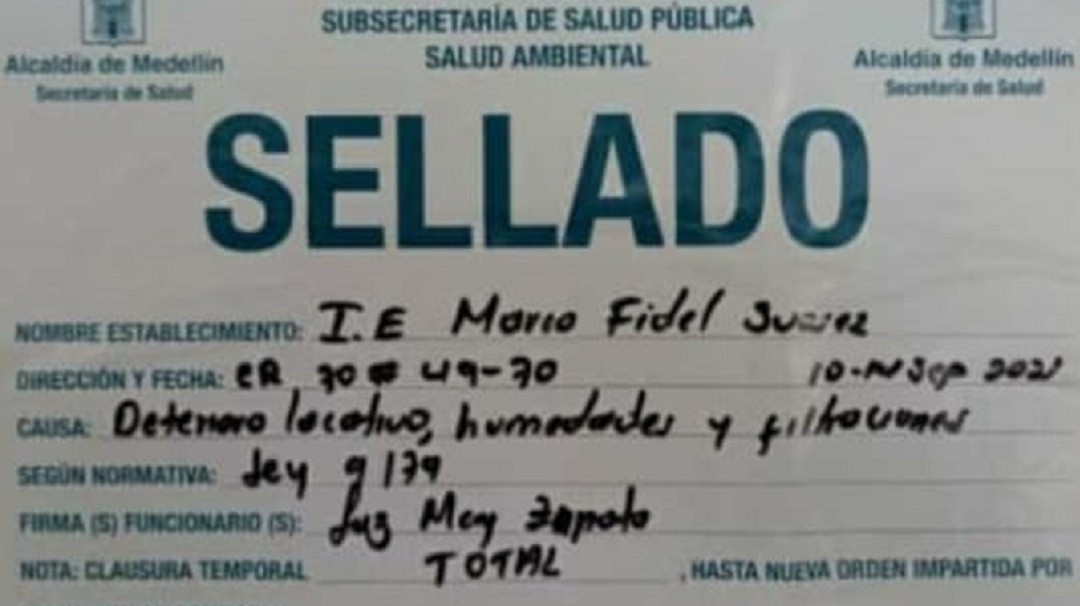 SUBSECRETARÍA DE SALUD PÚBLICA
SALUD AMBIENTAL
Alcaldía de Medellín
Secretaría de Salud
Alcaldía de Medellín
Secretaría de Salud
SELLADO
NOMBRE ESTABLECIMIENTO: I.E Marco Fidel Suarez
DIRECCIÓN Y FECHA: CR 70 # 49-70 10- Sep 2021
CAUSA: Deterioro locativo, humedades y filtraciones
SEGÚN NORMATIVA: Ley 9/79
FIRMA (S) FUNCIONARIO (S): Luz Mey Zapata
NOTA: CLAUSURA TEMPORAL TOTAL , HASTA NUEVA ORDEN IMPARTIDA POR